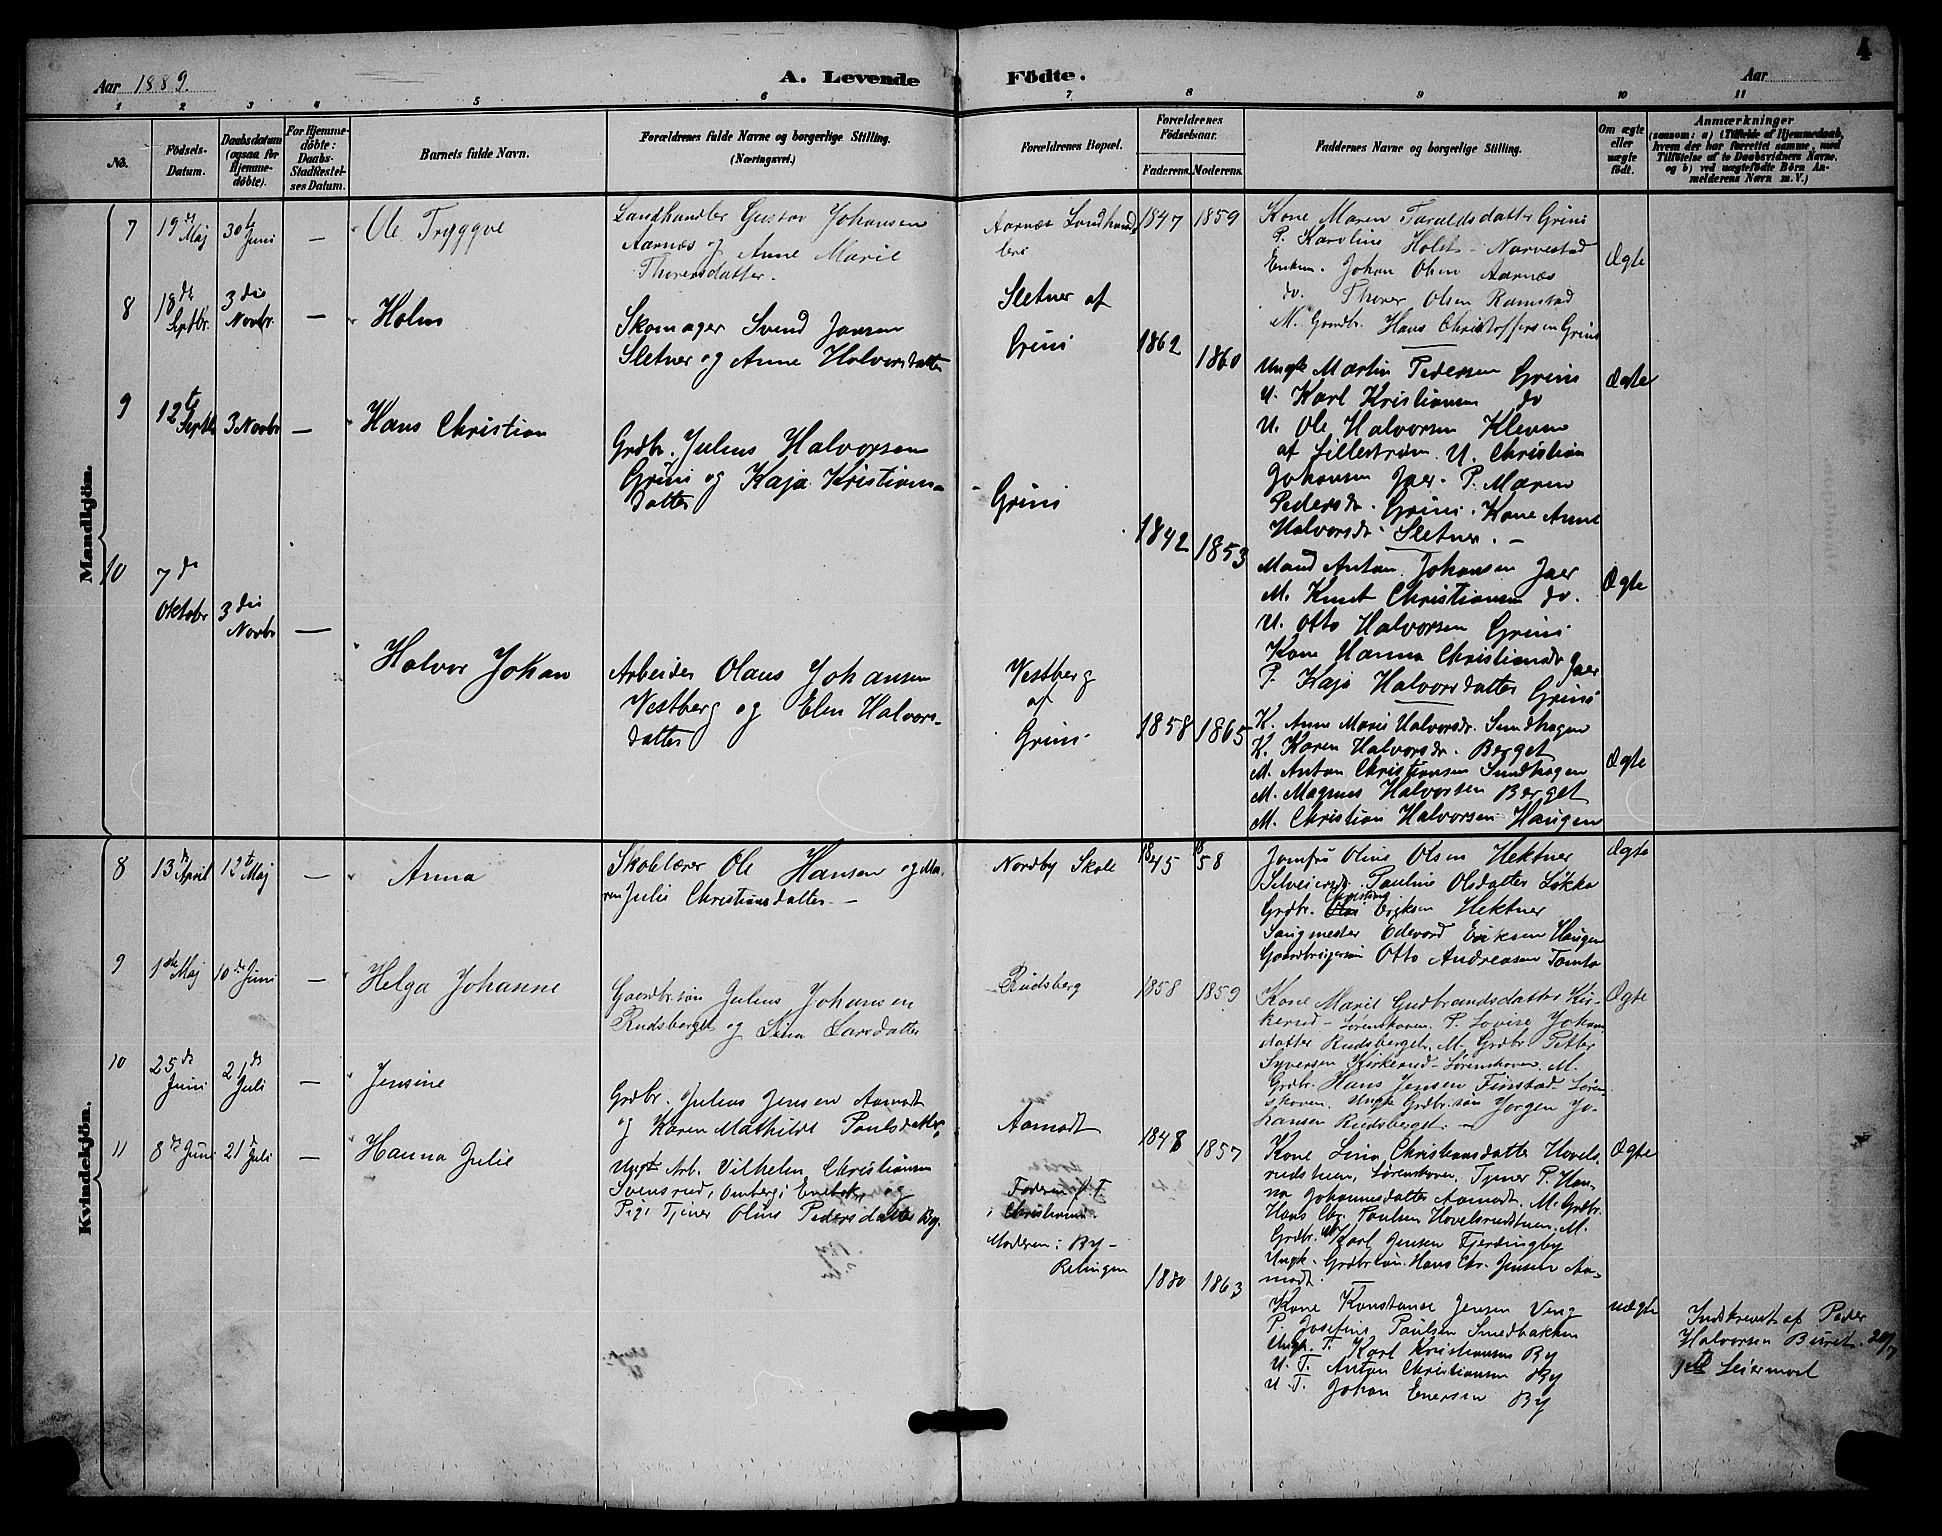 4
Aar 1889.
A. Levende Födte.
Aar
1 2 3 4 5 6 7 8 9 10 11
No.
Födsels-Datum.
Daabsdatum (ogsaa for Hjemmedöbte).
For Hjemmedöbte: Daabs-Stadfæstelses Datum.
Barnets fulde Navn.
Forældrenes fulde Navne og borgerlige Stilling. (Næringsvei.)
Forældrenes Bopæl.
Forældrenes Födselsaar.
Faderens. Moderens.
Faddernes Navne og borgerlige Stilling.
Om ægte eller uægte födt.
Anmærkninger
(saasom: a) i Tilfælde af Hjemmedaab, hvem der har forrettet samme, med Tilföielse af to Daabsvidners Navne, og b) ved uægtefödte Börn Anmelderens Navn m. V.)
Mandkjön.
7
19de Maj
30te Juni
—
Ole Tryggve
Landhandler Gustav Johansen
Aarnæs og Anne Marie
Thoresdatter.
Aarnæs Landhand
leri
1847
1859
Kone Maren Taraldsdatter Grini
P. Karoline Holst Narvestad
Enkem. Johan Olsen Aarnæs
do. Thorer Olsen Ramstad
M. Grndbr. Hans Christoffersen Grini
Ægte
8
18de Septbr.
3die Novbr.
—
Holm
Skomager Svend Jansen
Sletner og Anne Halvorsdatter
Sletner af
Grini
1862
1860
Ungk Martin Pedersen Grini
U. Karl Kristiansen do
U. Ole Halvorsen Kleven
af Lillestrøm. U. Christian
Johansen Jaer. P. Maren
Pedersdr. Grini. Kone Anne
Halvorsdr. Sletner. —
Ægte
9
12te Septbr
3 Novbr
—
Hans Christian
Grdbr. Julius Halvorsen
Grini og Kaja Kristians-
datter
Grini
1842
1853
Mand Anton Johansen Jaer
M. Knut Christiansen do.
U. Otto Halvorsen Grini
Kone Hanna Christiansdr Jaer
P. Kaja Halvorsdatter Grini
Ægte
10
7de Oktobr
3die Novbr
—
Halvor Johan
Arbeider Olaus Johansen
Vestberg og Elen Halvors-
datter
Vestberg
af
Grini
1858
1865
K. Anne Marie Halvorsdr. Sundhagen
K. Karen Halvorsdr. Berget
M. Anton Christiansen Sundhagen
M. Magnus Halvorsen Berget
M. Christian Halvorsen Haugen
Ægte
Kvindekjön.
8
13de April
12te Maj
—
Anna
Skolelærer Ole Hansen og Ma-
ren Julie Christiansdatter. —
Nordby Skole
1845
1858
Jomfru Oline Olsen Hektner
Pauline Olsdatter Løkke
Grdbr. Eriksen Hektner
Saugmester Edevard Eriksen Haugen
Gaardbrugersøn Otto Andreasen Tomta
Ægte
9
1ste Maj
10de Juni
—
Helga Johanne
Gaardbr.søn Julius Johansen
Rudsberget og Lina Larsdatter
Rudsberg
1858
1859
Kone Marie Gudbrandsdatter Kir-
kerud – Lørenskoven. P. Lovise Johans
datter Rudsberget. M. Grdbr. Petter
Syversen Kirkerud – Lørenskoven. M.
Grdbr. Hans Jensen Finstad – Løren-
skoven. Ungk Grdbr.søn Jørgen Jo-
hansen Rudsberget. —
Ægte
10
25de Juni
21de Juli
—
Jensine
Grdbr. Julius Jensen Aamodt
og Karen Mathilde Paulsdatter
Aamodt
1848
1857
Kone Lina Christiansdatter Hovels-
rudstuen, Lørenskoven. Tjener P. Han-
na Johannesdatter Aamodt. M. Grdbr.
Hans Chr. Paulsen Hovelsrudstuen. M.
Grdbr. Karl Jensen Fjerdingby
Ungk. Grdbrsøn. Hans Chr. Jensen Aa-
modt.
Ægte
11
8de Juni
21de Juli
—
Hanna Julie
Ungk. Arb. Vilhelm Christiansen
Svensrud, Omberg i Enebak,
Pige Tjener Oline Pedersdatter By.
Faderen f. T.
i Christiania.
Moderen: By –
Relingen
1860
1863
Kone Konstanse Jensen Ving
P. Josefine Paulsen Smedbakken
Ungk. T. Karl Kristiansen By
U. T. Anton Christiansen By
U. T. Johan Enersen By
Uægte
Indskrevet af Peder
Halvorsen Buret. 20/7